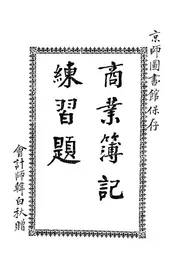 京師圖書館保存
商業簿記
練習題
會計師韓白秋贈